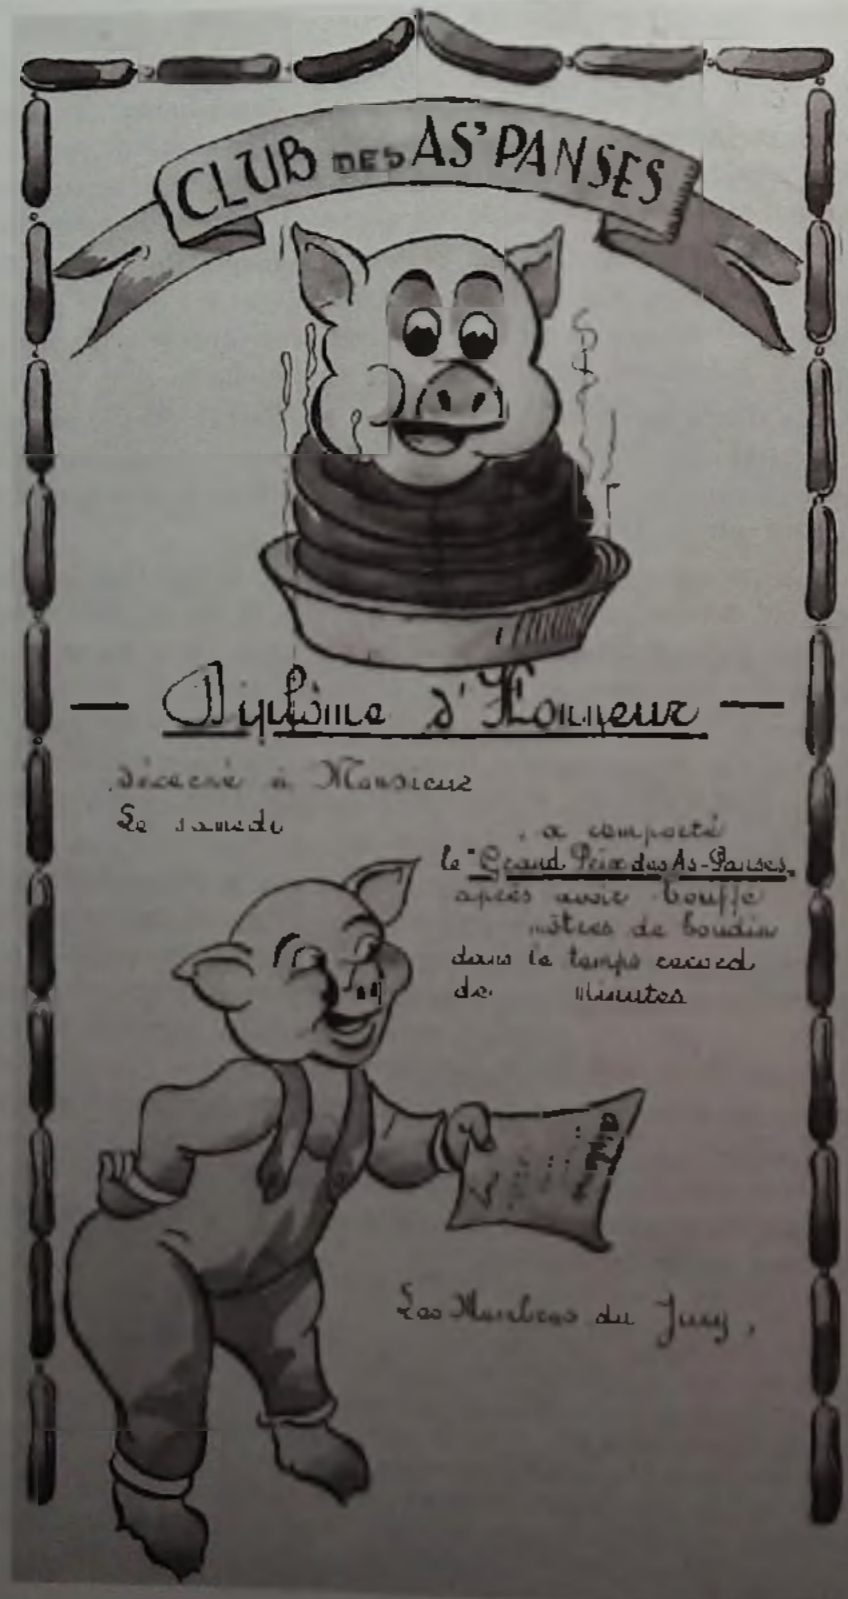 CLUB DES AS'PANSES
Diplôme d'Honneur
décerné à Monsieur
Le samedi
, a emporté
le "Grand Prix des As-Panses"
après avoir bouffé
mètres de boudin
dans le temps record
de minutes
Les Membres du Jury,